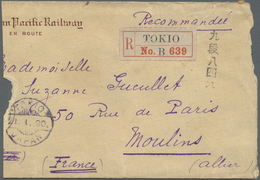 n Pacific Railway
EN ROUTE
Recommandée
R TOKIO
No. B 639
九段八四
Mademoiselle
Suzanne Gucullet
50 Rue de Paris
Moulins
(France) (Allier)
TOKIO
JAPAN